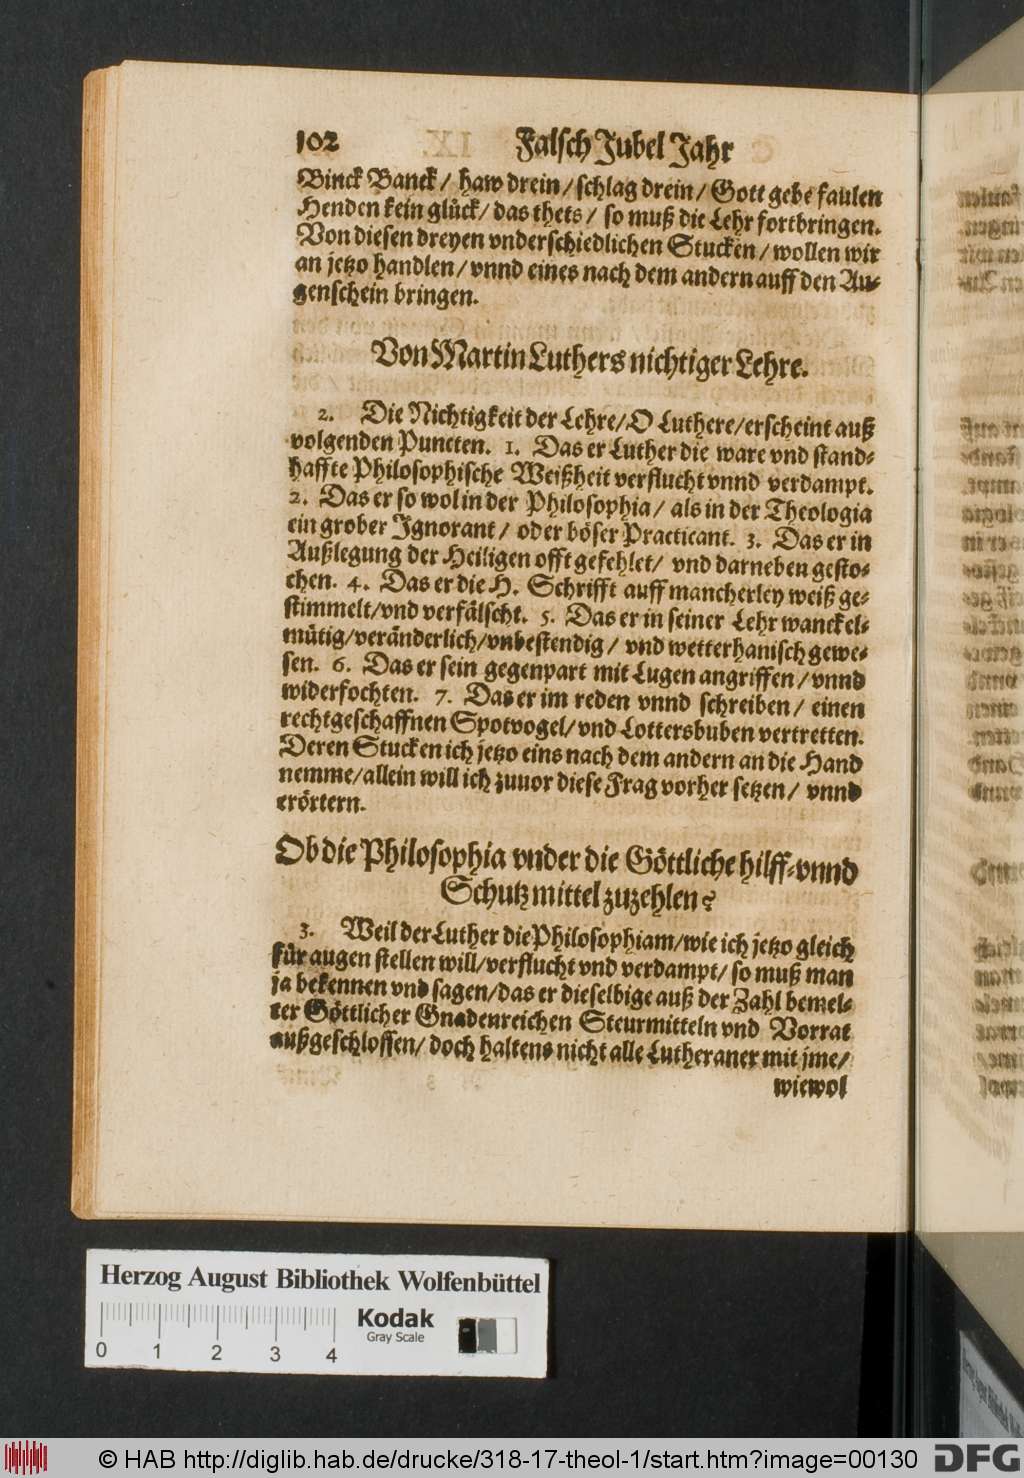 102 Falsch Jubel Jahr
Binck Banck / haw drein / schlag drein / Gott gebe faulen
Henden kein glück / das thets / so muß die Lehr fortbringen.
Von diesen dreyen vnderschiedlichen Stucken / wollen wir
an jetzo handlen / vnnd eines nach dem andern auff den Au-
genschein bringen.
Von Martin Luthers nichtiger Lehre.
2. Die Nichtigkeit der Lehre / O Luthere / erscheint auß
volgenden Puncten. 1. Das er Luther die ware vnd stand-
haffte Philosophische Weißheit verflucht vnnd verdampt.
2. Das er so wol in der Philosophia / als in der Theologia
ein grober Ignorant / oder böser Practicant. 3. Das er in
Außlegung der Heiligen offt gefehlet / vnd darneben gesto-
chen. 4. Das er die H. Schrifft auff mancherley weiß ge-
stimmelt / vnd verfälscht. 5. Das er in seiner Lehr wanckel-
mütig / veränderlich / vnbestendig / vnd wetterhanisch gewe-
sen. 6. Das er sein gegenpart mit Lugen angriffen / vnnd
widerfochten. 7. Das er im reden vnnd schreiben / einen
rechtgeschaffnen Spotvogel / vnd Lottersbuben vertretten.
Deren Stucken ich jetzo eins nach dem andern an die Hand
nemme / allein will ich zuuor diese Frag vorher setzen / vnnd
erörtern.
Ob die Philosophia vnder die Göttliche hilff- vnnd
Schutzmittel zuzehlen?
3. Weil der Luther die Philosophiam / wie ich jetzo gleich
für augen stellen will / verflucht vnd verdampt / so muß man
ja bekennen vnd sagen / das er dieselbige auß der Zahl bemel-
ter Göttlicher Gnadenreichen Steurmitteln vnd Vorrat
außgeschlossen / doch haltens nicht alle Lutheraner mit jme /
wiewol
Herzog August Bibliothek Wolfenbüttel
Kodak
Gray Scale
0 1 2 3 4
© HAB http://diglib.hab.de/drucke/318-17-theol-1/start.htm?image=00130
DFG